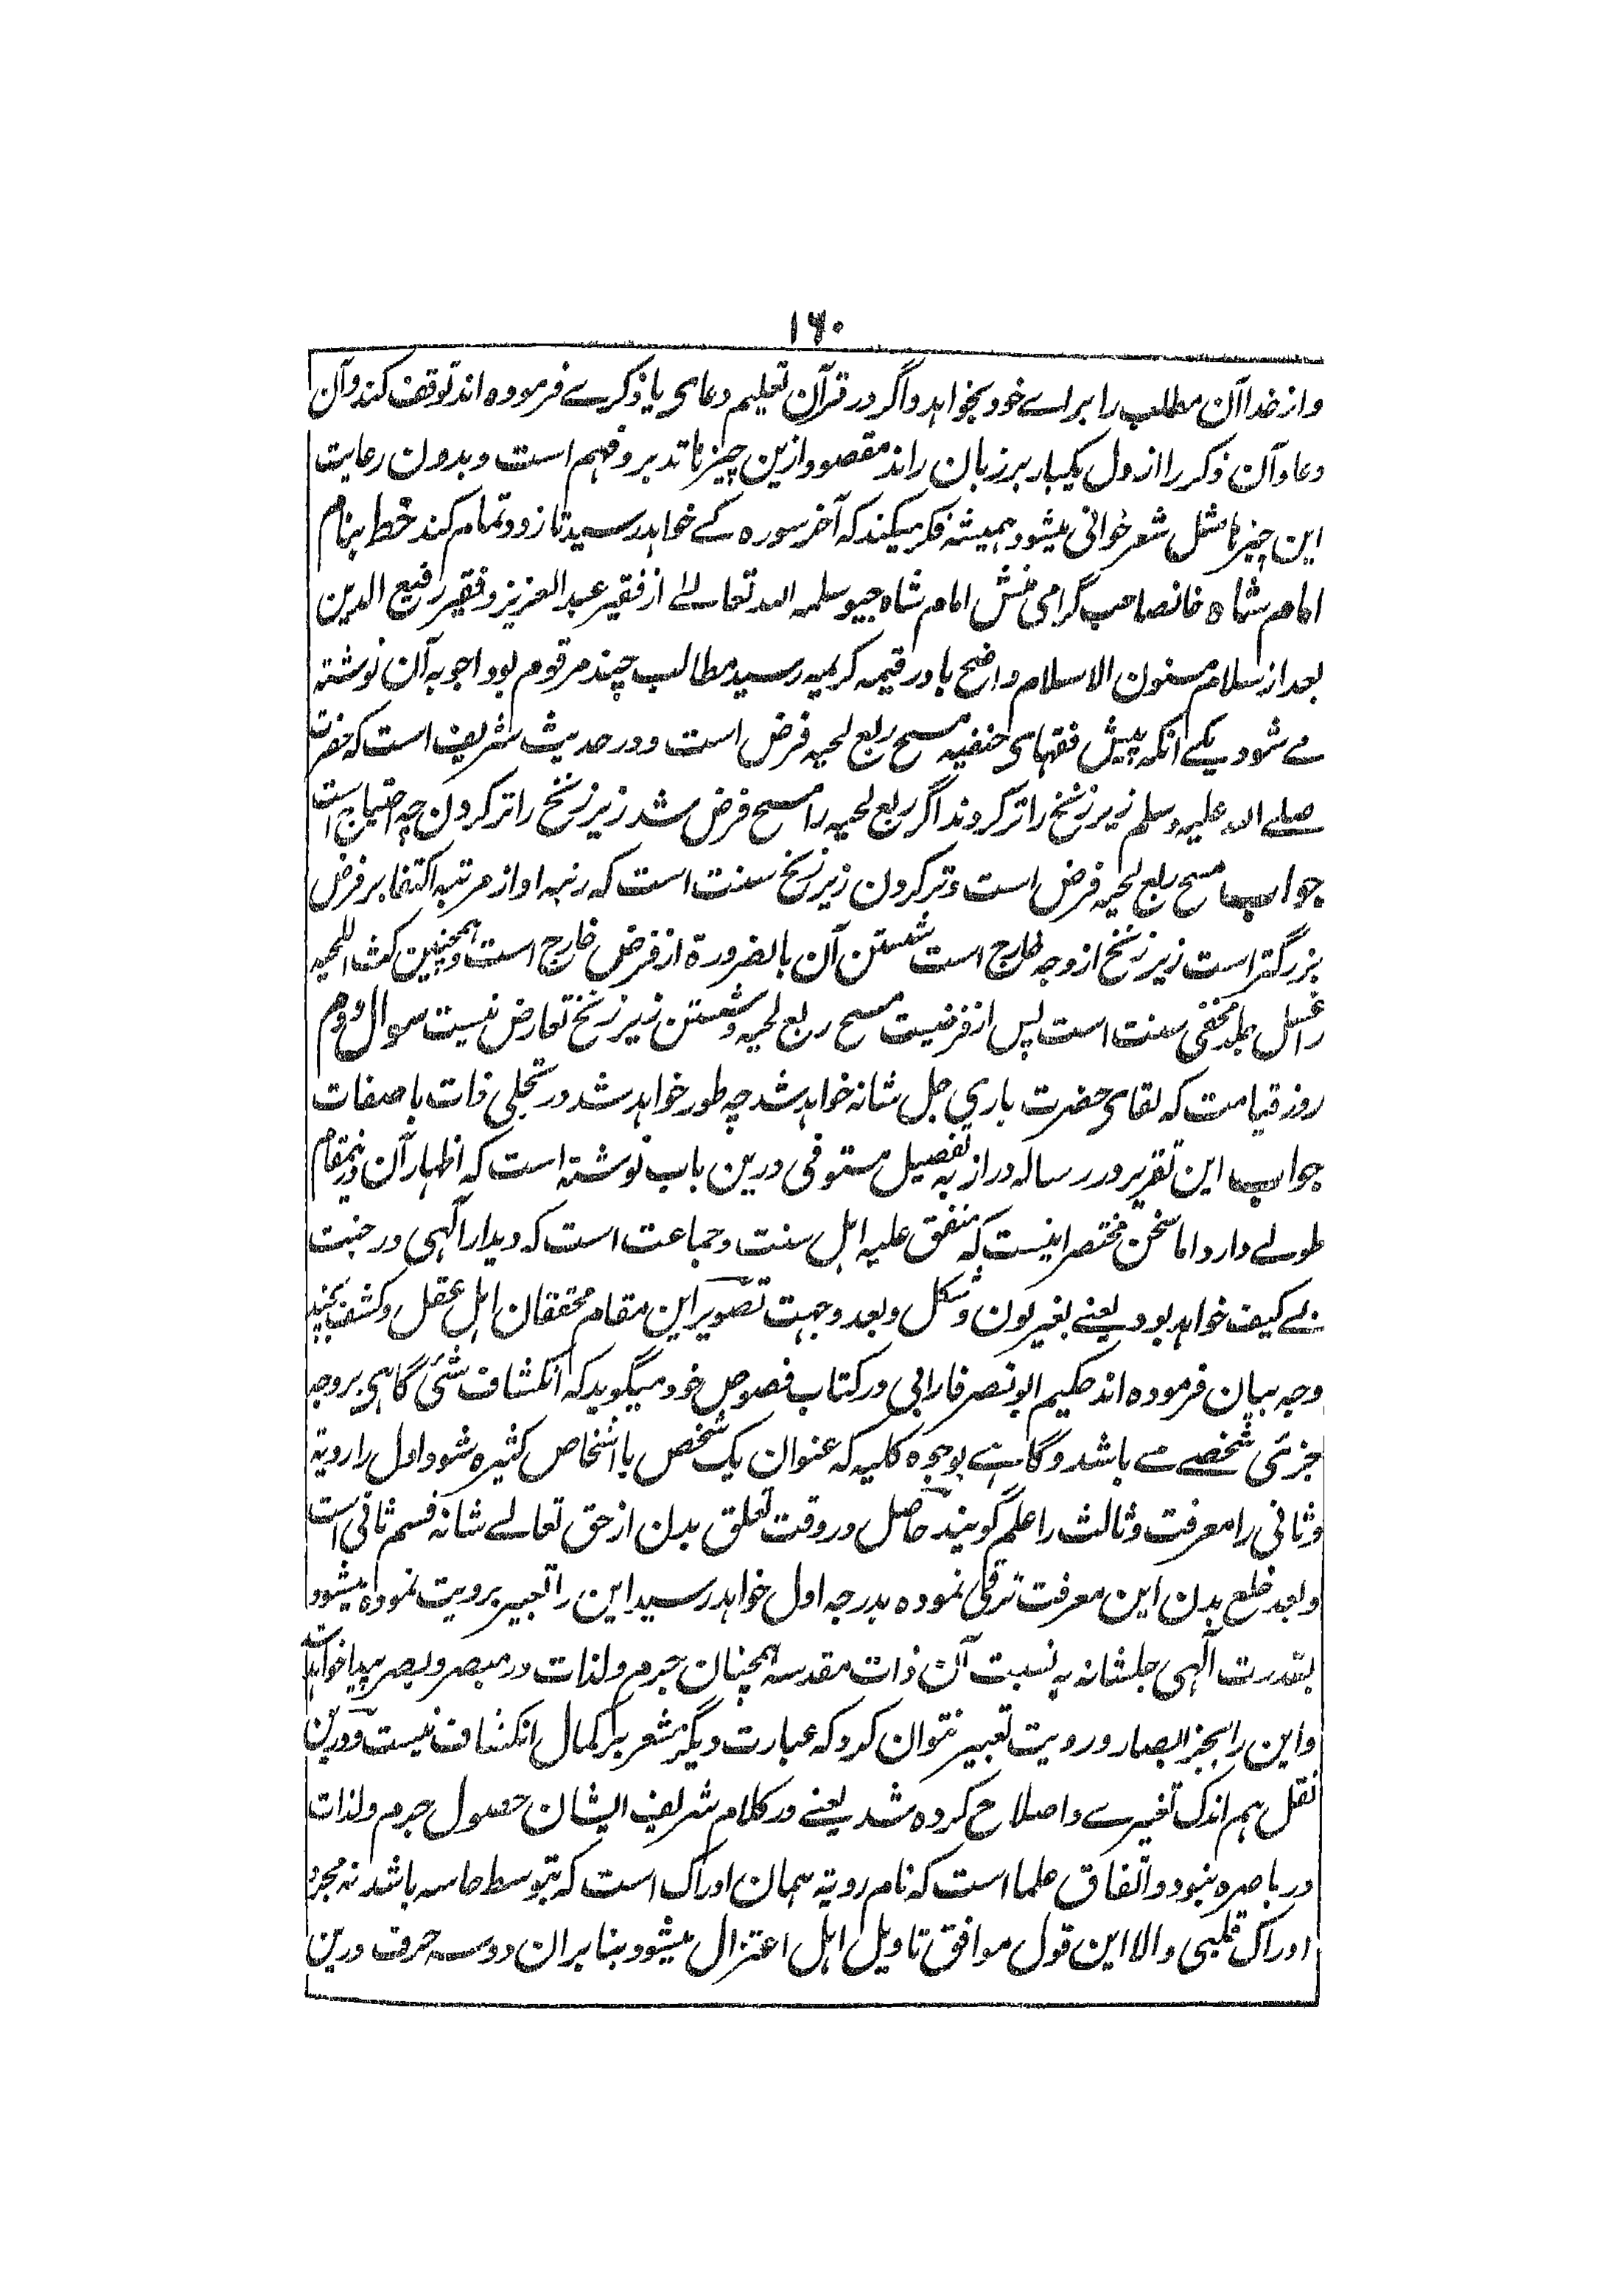 ۱۶۰
و از خدا آن مطلب را برای خود بخواهد و اگر در قرآن تعلیم دعای یا ذکرے فرموده اند توقف کند و آن
دعا و آن ذکر را از دل یکبار بر زبان راند مقصود ازین چیزها تدبر و فهم است و بدون رعایت
این چیزها مثل شعر خوانی میشود و همیشه فکر میکند که آخر سوره کے خواهد رسید تا زود تمام کند خط بنام
امام شاه خانصاحب گرامی منش امام شاه جیو سلمه الله تعالےٰ از فقیر عبد العزیز و فقیر رفیع الدین
بعد از سلام مسنون الاسلام واضح باد رقیمه کریمه رسید مطالب چند مرقوم بود اجوبه آن نوشته
مے شود یکے آنکه پیش فقهای حنفیه مسح ربع لحیه فرض است و در حدیث شریف است که حضرت
صلے الله علیه وسلم زیر زنخ را تر کردند اگر ربع لحیه را مسح فرض شد زیر زنخ را تر کردن چه احتیاج است
جواب مسح ربع لحیه فرض است و تر کردن زیر زنخ سنت است که رتبه او از مرتبه اکتفا بر فرض
بزرگتر است زیر زنخ از وجه خارج است شستن آن بالضرورة از فرض خارج است و همچنین کث اللحیه
را غسل جلد مخفی سنت است پس از فرضیت مسح ربع لحیه و شستن زیر زنخ تعارض نیست سوال دوم
روز قیامت که لقای حضرت باری جل شانه خواهد شد چه طور خواهد شد در تجلی ذات با صفات
جواب این تقریر در رساله دراز به تفصیل مستوفی درین باب نوشته است که اظهار آن درینمقام
طولے دارد اما سخن مختصر اینست که متفق علیه اهل سنت و جماعت است که دیدار الٓهی در جنت
بے کیف خواهد بود یعنے بغیر لون و شکل و بعد و جهت تصویر این مقام محققان اهل عقل و کشف بچند
وجه بیان فرموده اند حکیم ابو نصر فارابی در کتاب فصوص خود میگوید که انکشاف شئ گاهی بر وجه
جزئی شخصے مے باشد و گاهے بوجوه کلیه که عنوان یک شخص یا اشخاص کثیره شود اول را رویة
و ثانی را معرفت و ثالث را علم گویند حاصل در وقت تعلق بدن از حق تعالے شانه قسم ثانی است
و بعد خلع بدن این معرفت ترقی نموده بدرجه اول خواهد رسید این را تعبیر برویت نموده میشود
بقدرت الٓهی جلشانه به نسبت آن ذات مقدسه همچنان جرم ولذات در مبصر و بصر پیدا خواهد
و این را بجز ابصار و رویت تعبیر نتوان کرد که عبارت دیگر مشعر بر کمال انکشاف نیست و درین
نقل هم اندک تغیرے و اصلاح کرده شد یعنے در کلام شریف ایشان حصول جرم ولذات
در باصره نبود و اتفاق علما است که نام رویة همان ادراک است که بتوسط حاسه باشد نه مجرد
ادراک قلبی و الا این قول موافق تاویل اهل اعتزال میشود بنابران دو سه حرف درین